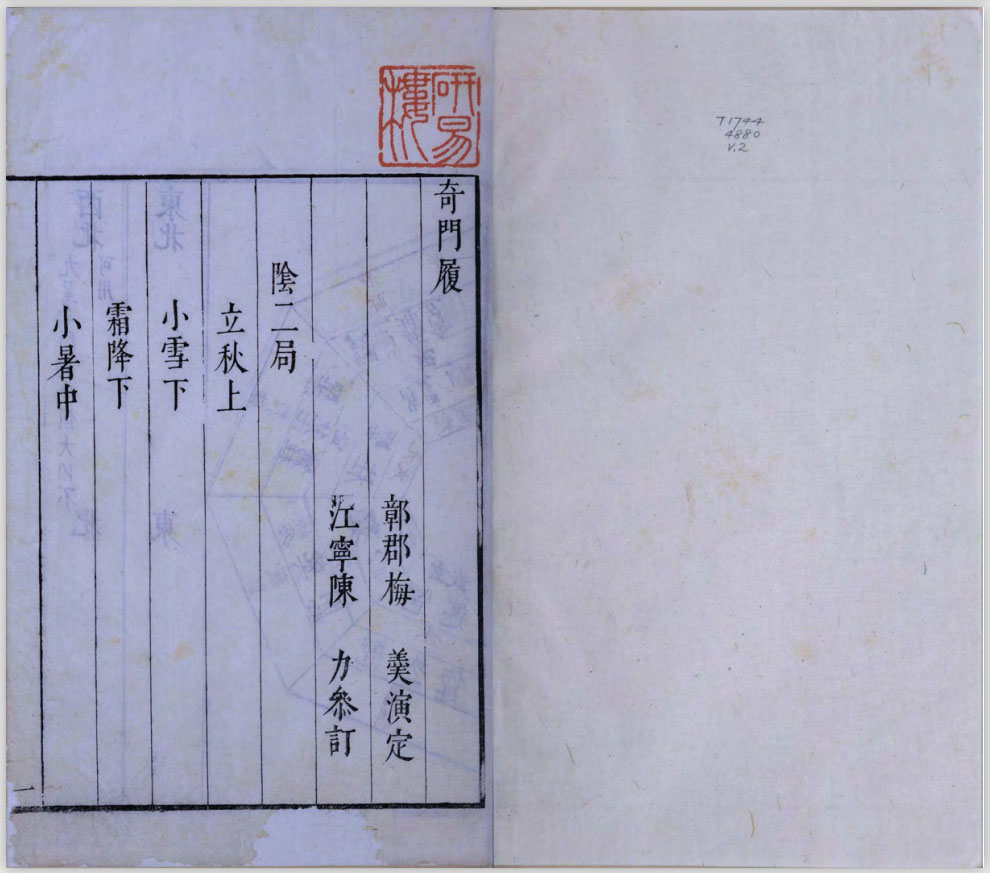 T1744
4880
V.2
研易樓
奇門履
鄣郡梅 羹演定
江寧陳 力叅訂
陰二局
立秋上
小雪下
霜降下
小暑中
一